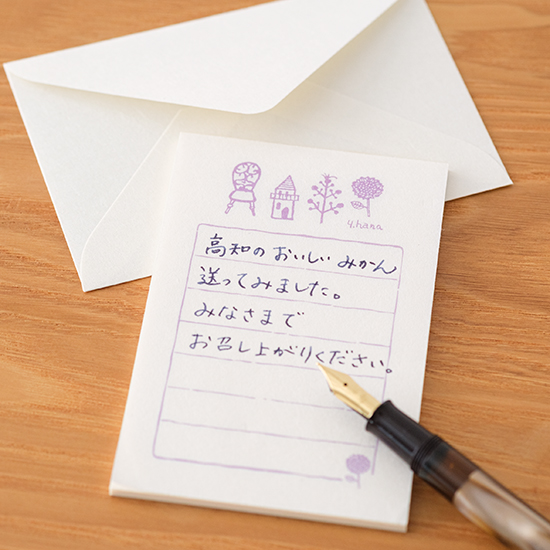 y.hana
高知のおいしいみかん
送ってみました。
みなさまで
お召し上がりください。